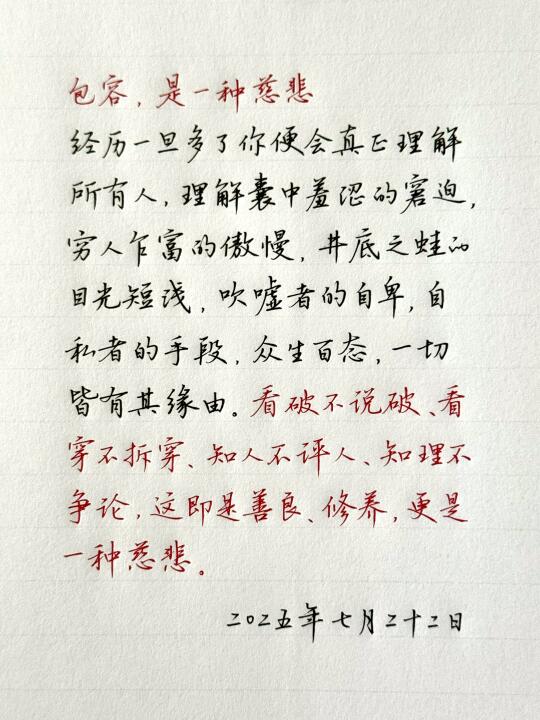 包容，是一种慈悲
经历一旦多了你便会真正理解
所有人，理解囊中羞涩的窘迫，
穷人乍富的傲慢，井底之蛙的
目光短浅，吹嘘者的自卑，自
私者的手段，众生百态，一切
皆有其缘由。看破不说破、看
穿不拆穿、知人不评人、知理不
争论，这即是善良、修养，更是
一种慈悲。
二〇二五年七月二十二日